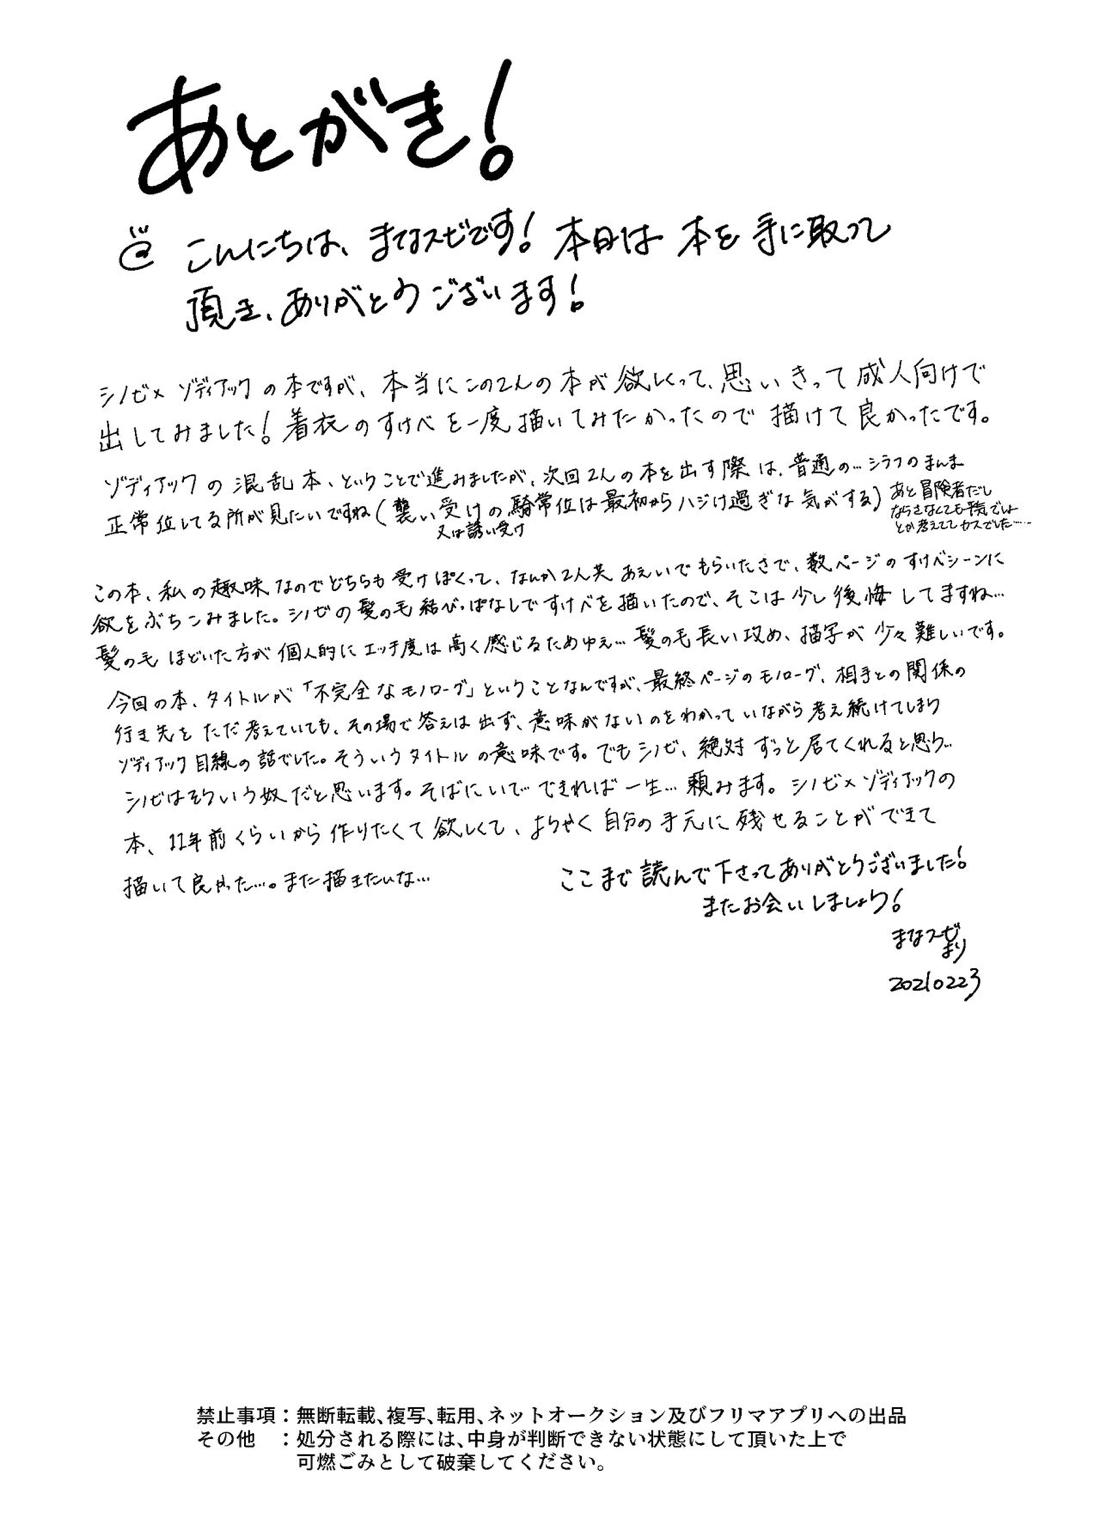 あとがき!
こんにちは、まなスピです! 本日は 本を 手に取って
頂き、ありがとうございます!
シノビ×ゾディアックの本ですが、本当にこの2人の本が欲しくって、思いきって成人向けで
出してみました! 着衣のすけべを一度描いてみたかったので描けて良かったです。
ゾディアックの混乱本、ということで進みましたが、次回2人の本を出す際は、普通の…シラフのまんま
正常位してる所が見たいですね(襲い受けの騎常位は最初からハジけ過ぎな気がする)
又は誘い受け
あと冒険者だし
ならさなくても平気でしょ
とか考えててカスでした……
この本、私の趣味なのでどちらも受けぽくって、なんか2人共あえいでもらいたさで、数ページのすけべシーンに
欲をぶちこみました。シノビの髪の毛結びっぱなしですけべを描いたので、そこは少し後悔してますね…
髪の毛ほどいた方が個人的にエッチ度は高く感じるためゆえ…髪の毛長い攻め、描写が少々難しいです。
今回の本、タイトルが「不完全なモノローグ」ということなんですが、最終ページのモノローグ、相手との関係の
行き先をただ考えていても、その場で答えは出ず、意味がないのをわかっていながら考え続けてしまう
ゾディアック目線の話でした。そういうタイトルの意味です。でもシノビ、絶対ずっと居てくれると思う…
シノビはそういう奴だと思います。そばにいて…できれば一生…頼みます。シノビ×ゾディアックの
本、11年前くらいから作りたくて欲しくて、ようやく自分の手元に残せることができて
描いて良かった…。また描きたいな…
ここまで読んで下さってありがとうございました!
またお会いしましょう!
まなスピ
まり
20210223
禁止事項：無断転載、複写、転用、ネットオークション及びフリマアプリへの出品
その他　：処分される際には、中身が判断できない状態にして頂いた上で
可燃ごみとして破棄してください。